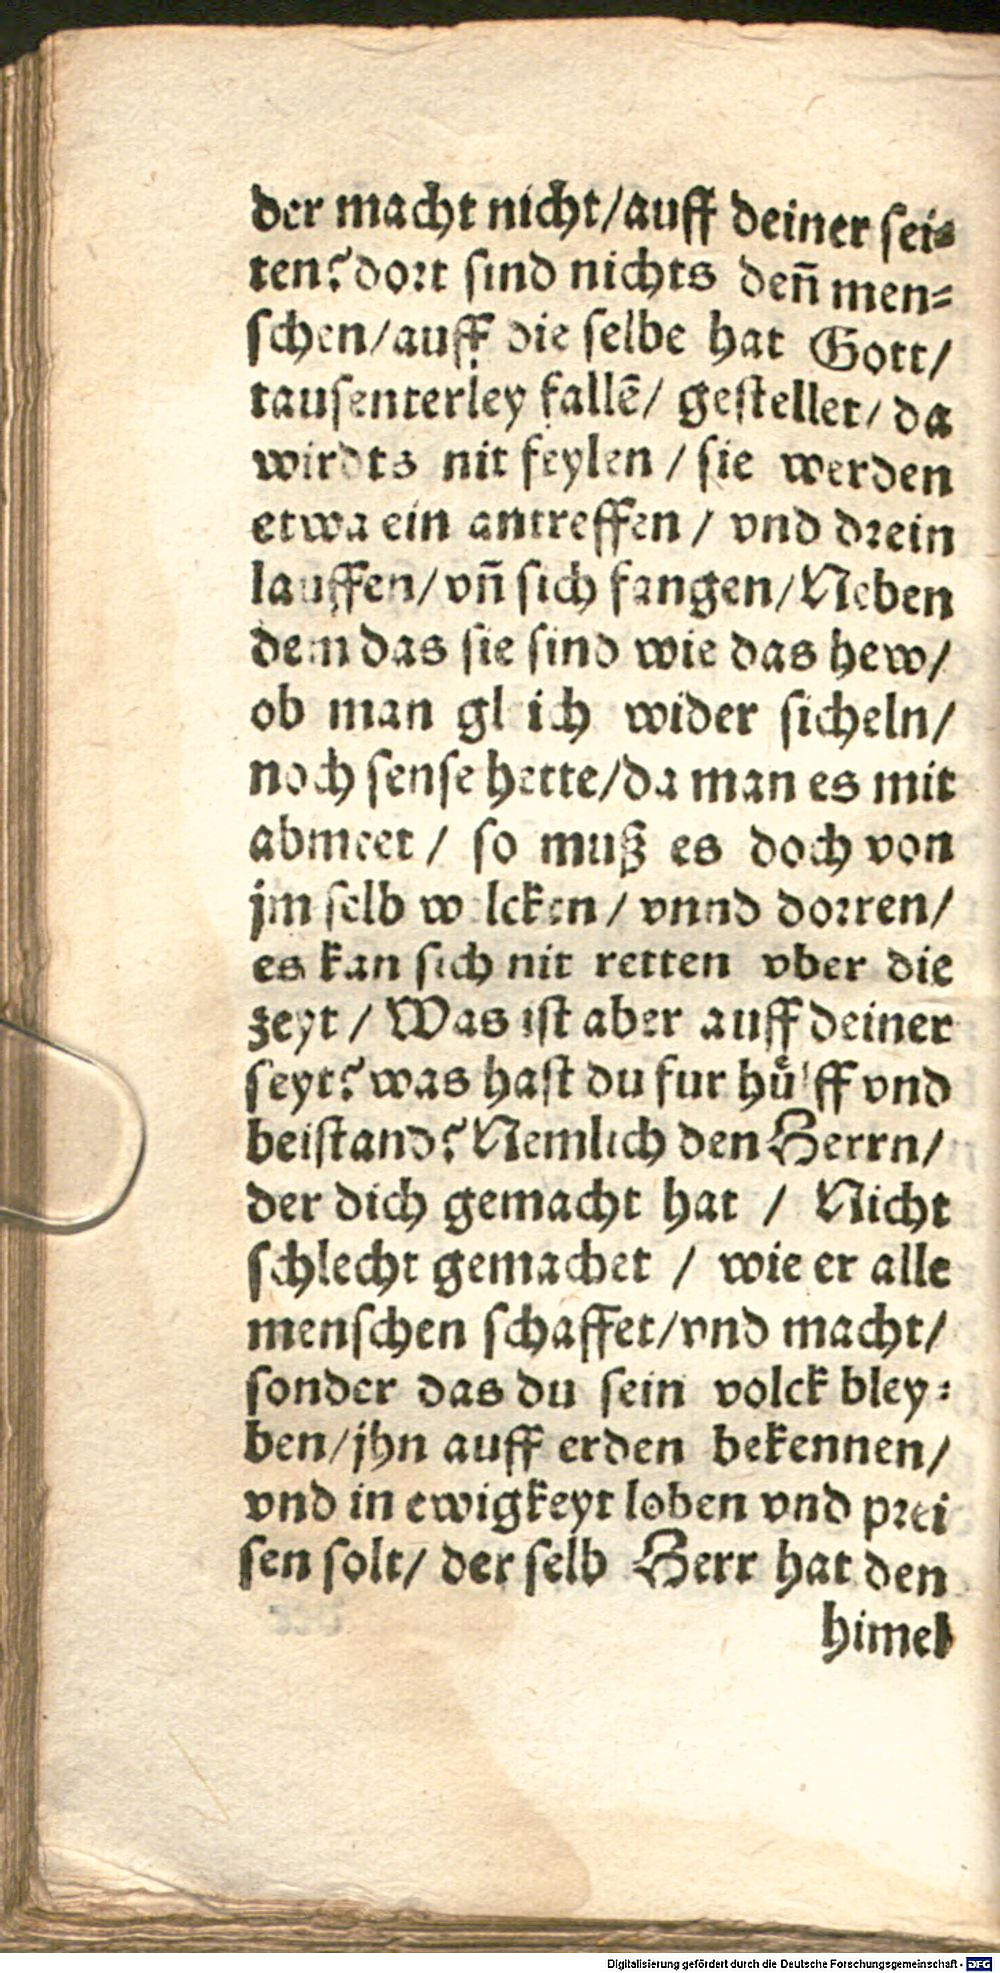 der macht nicht/auff deiner sei⸗
ten? dort sind nichts deñ men⸗
schen/auff die selbe hat Gott/
tausenterley fallẽ/ gestellet/ da
wirdts nit feylen / sie werden
etwa ein antreffen / vnd drein
lauffen/vñ sich fangen/Neben
dem das sie sind wie das hew/
ob man gleich wider sicheln/
noch sense hette/da man es mit
abmeet / so muß es doch von
jm selb welcken / vnnd dorren/
es kan sich nit retten vber die
zeyt / Was ist aber auff deiner
seyt? was hast du fur hülff vnd
beistand? Nemlich den Herrn/
der dich gemacht hat / Nicht
schlecht gemachet / wie er alle
menschen schaffet/vnd macht/
sonder das du sein volck bley⸗
ben/jhn auff erden bekennen/
vnd in ewigkeyt loben vnd prei
sen solt/ der selb Herr hat den
himel
Digitalisierung gefördert durch die Deutsche Forschungsgemeinschaft - DFG